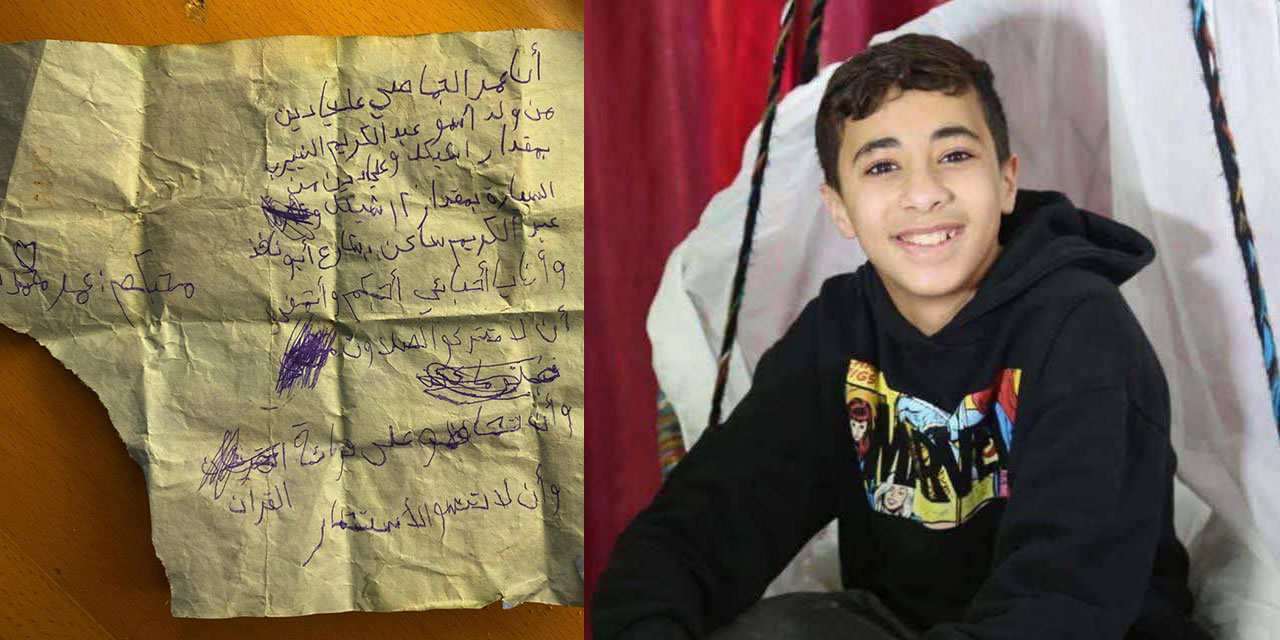 أنا عمر الجماصي علي دين
من ولد اسمو عبد الكريم النيرب
بمقدار 1 شيكل وعلي دين من
السيارة بمقدار 2 شيكل
عبد الكريم ساكن بشارع أبو نافذ
وأنا يا أحبابي أتمنى
أن لا تتركو الصلاة و
وأن تحافظو على قرائة
القرأن
وأن لا تنسو الأستغفار
محبكم: عمر محمد
MARVEL